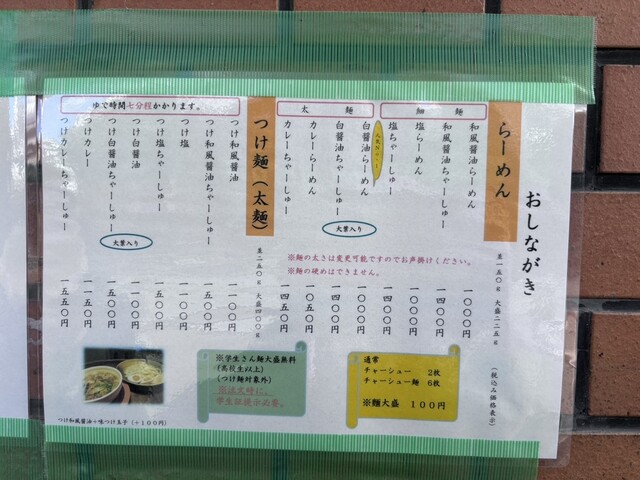 おしながき
(税込み価格表示)
らーめん
並一五〇g 大盛二二五g
細麺
和風醤油らーめん 一〇〇〇円
和風醤油ちゃーしゅー 一四〇〇円
塩らーめん 一〇〇〇円
塩ちゃーしゅー 一四〇〇円
太麺
白醤油らーめん 一〇〇〇円
白醤油ちゃーしゅー 一四〇〇円
大葉入り
カレーらーめん 一〇五〇円
カレーちゃーしゅー 一四五〇円
※麺の太さは変更可能ですのでお声掛けください。
※麺の硬めはできません。
つけ麺(太麺)
並二五〇g 大盛四〇〇g
ゆで時間七分程かかります。
つけ和風醤油 一一〇〇円
つけ和風醤油ちゃーしゅー 一五〇〇円
つけ塩 一一〇〇円
つけ塩ちゃーしゅー 一五〇〇円
つけ白醤油 一一〇〇円
つけ白醤油ちゃーしゅー 一五〇〇円
大葉入り
つけカレー 一一五〇円
つけカレーちゃーしゅー 一五五〇円
通常
チャーシュー 2枚
チャーシュー麺 6枚
※麺大盛 100円
※学生さん麺大盛無料
(高校生以上)
(つけ麺対象外)
※注文時に、
学生証提示必要。
つけ和風醤油+味つけ玉子(+100円)